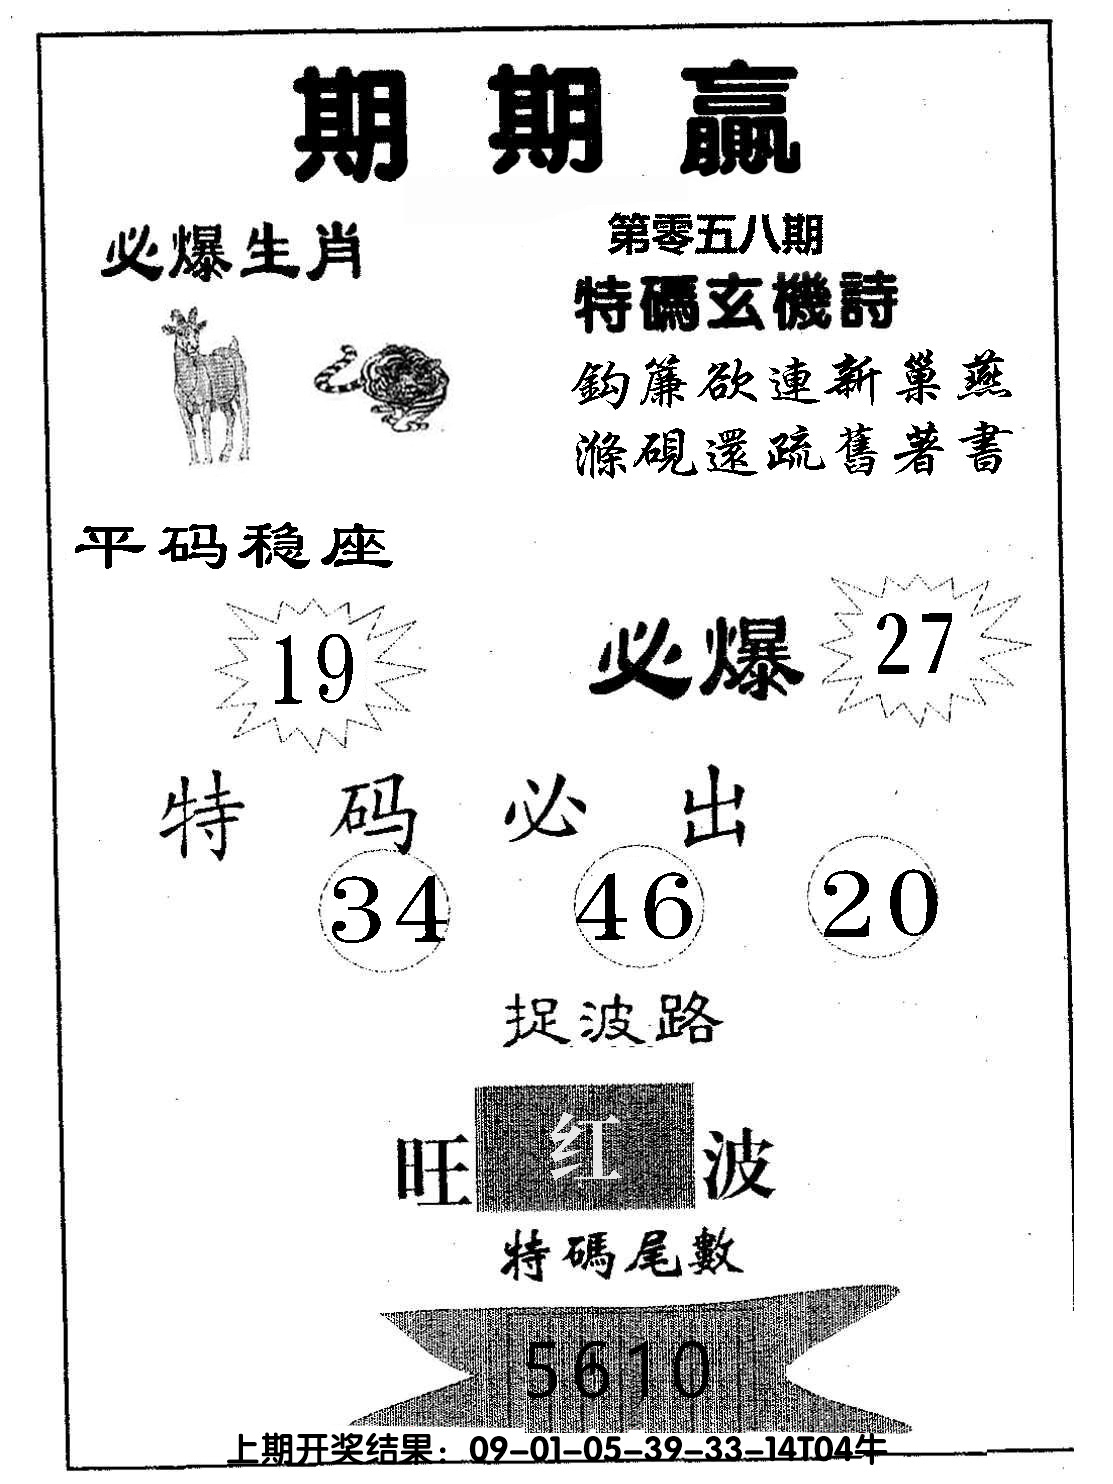 期期贏
必爆生肖
第零五八期
特碼玄機詩
鈎簾欲連新巢燕
滌硯還疏舊著書
平码稳座
19
必爆 27
特码必出
34 46 20
捉波路
旺红波
特碼尾數
5610
上期开奖结果：09-01-05-39-33-14T04牛